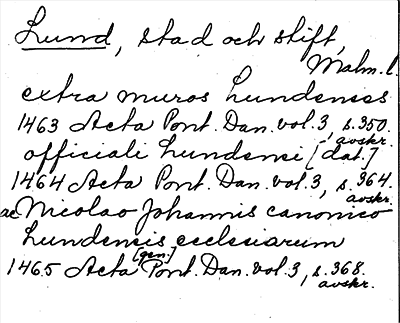 Lund, stad och stift,
Malm. l.
extra muros Lundenses
1463 Acta Pont. Dan. vol. 3, s. 350.
avskr.
officiali Lundensi [dat.]
1464 Acta Pont. Dan. vol. 3, s. 364.
avskr.
ac Nicolao Johannis canonico
Lundensis ecclesiarum
[gen.]
1465 Acta Pont. Dan. vol. 3, s. 368.
avskr.